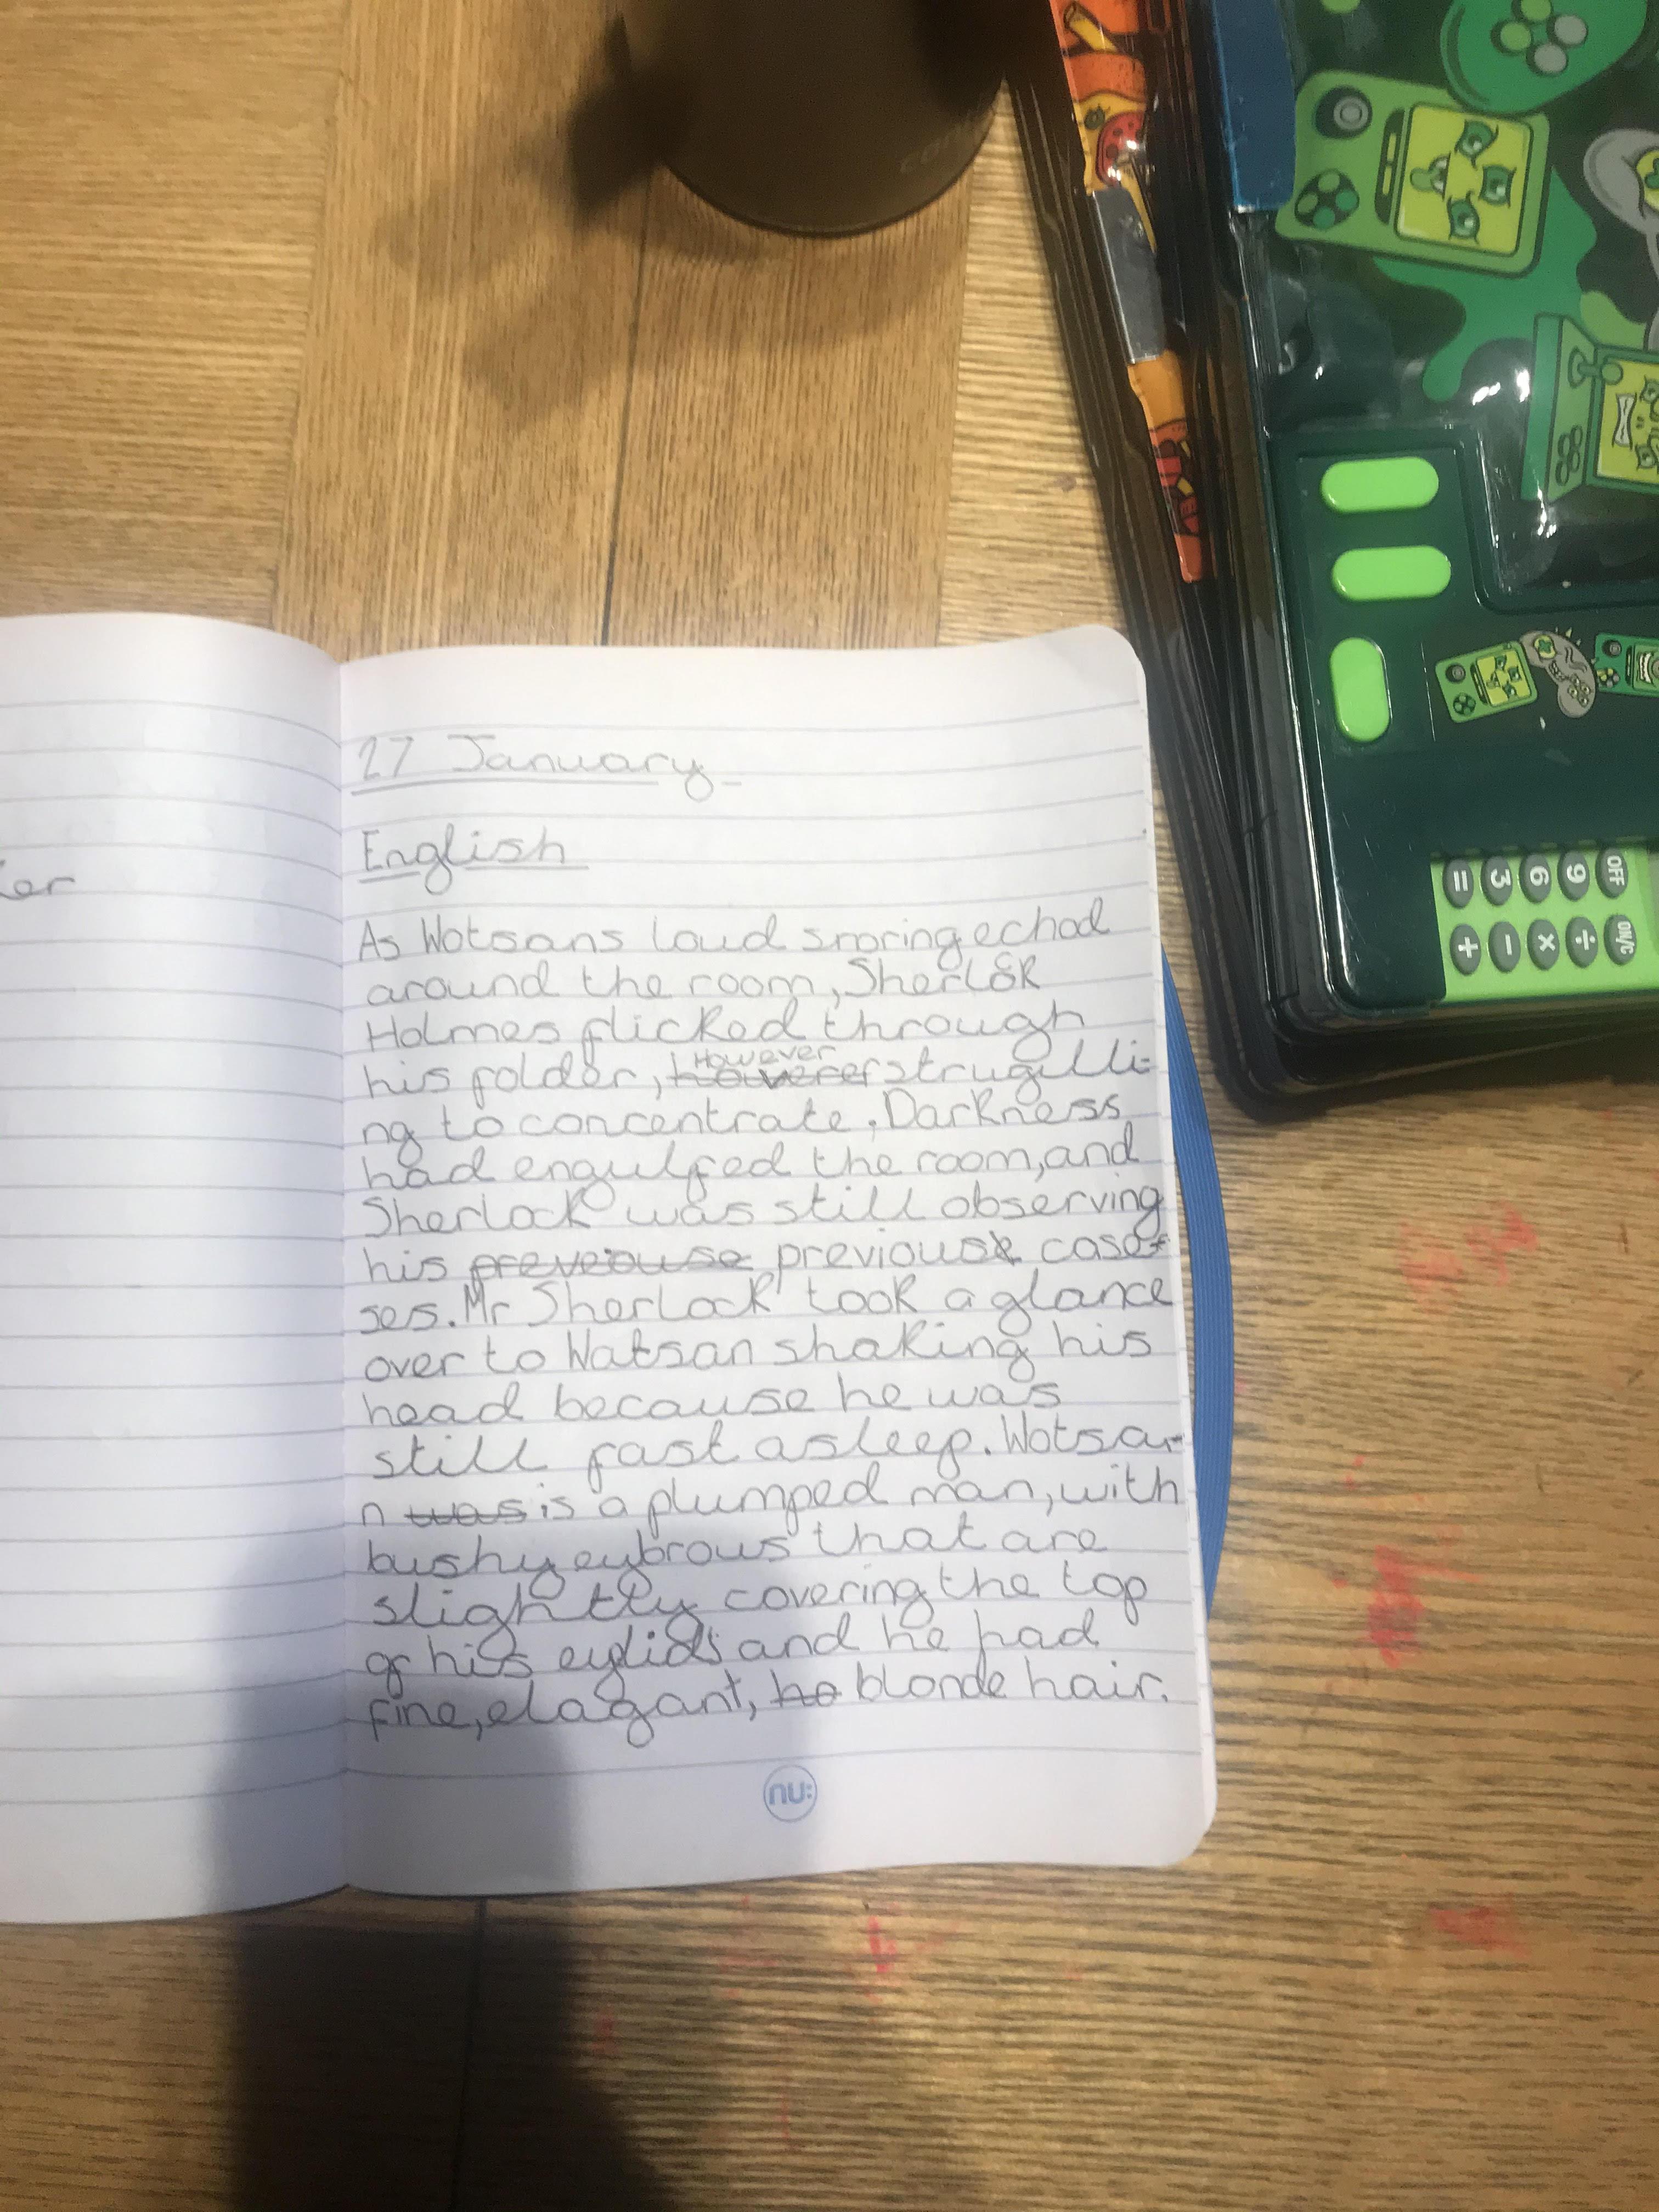 27 January
English
As Wotsans loud snoring echod
around the room, Sherlock
Holmes flicked through
his folder, However strugilli-
ng to concentrate. Darkness
had engulfed the room, and
Sherlock was still observing
his preveouse previous case-
ses. Mr Sherlock took a glance
over to Watsan shaking his
head because he was
still fast asleep. Wotsa-
n was is a plumped man, with
bushy eybrows that are
slightly covering the top
of his eylids and he had
fine, elagant, ha blonde hair.
nu:
ker
OFF
ON/C
9
÷
6
×
3
-
=
+